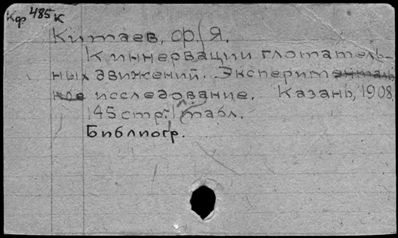 Кф 485 К
Китаев, Ф. Я.
К иннервации глотатель-
ных движений. Эксперименталь-
ное исследование. Казань, 1908.
145 стр. 1 табл.
Библиогр.